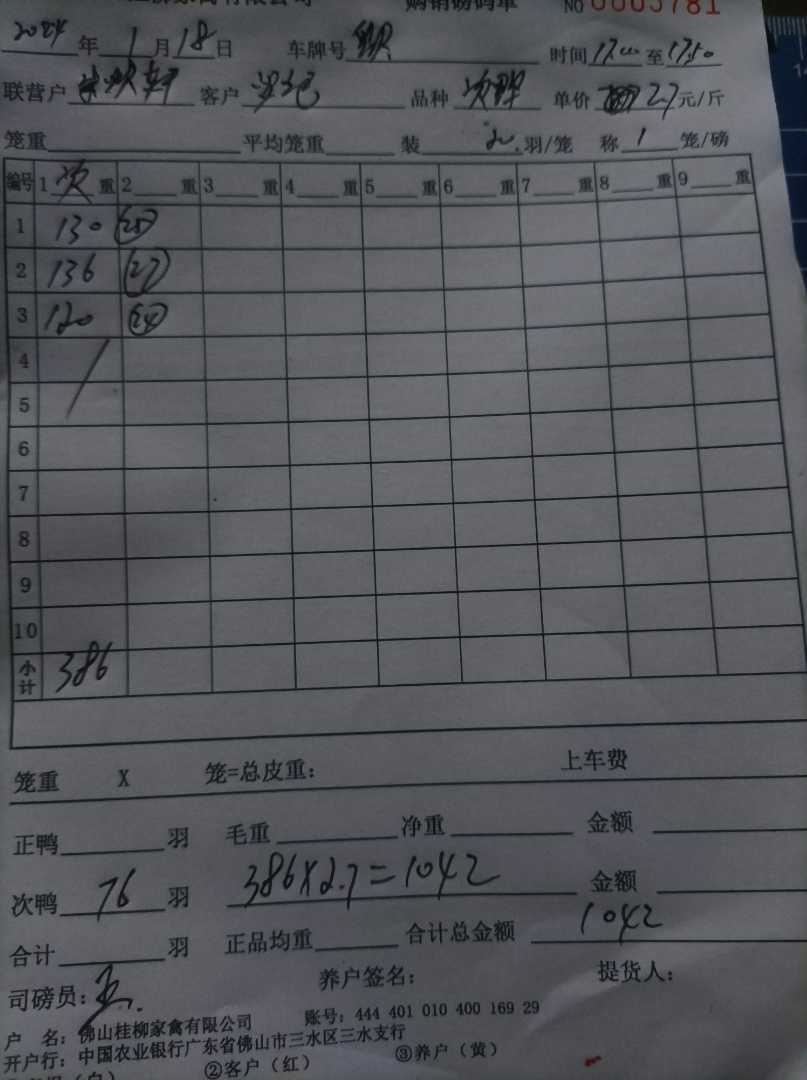 购销磅码单 NO 0005781
2024年1月18日 车牌号 时间17:00至17:50
联营户 客户 品种次鸭 单价2.7元/斤
笼重 平均笼重 装 羽/笼 称1笼/磅
编号 1次重 2重 3重 4重 5重 6重 7重 8重 9重
1 130 (25)
2 136 (27)
3 120 (24)
4
5
6
7
8
9
10
小计 386
笼重 X 笼=总皮重: 上车费
正鸭 羽 毛重 净重 金额
次鸭76羽 386×2.7=1042 金额
合计 羽 正品均重 合计总金额 1042
司磅员: 养户签名: 提货人:
户 名: 佛山桂柳家禽有限公司 账号: 444 401 010 400 169 29
开户行: 中国农业银行广东省佛山市三水区三水支行
②客户(红) ③养户(黄)